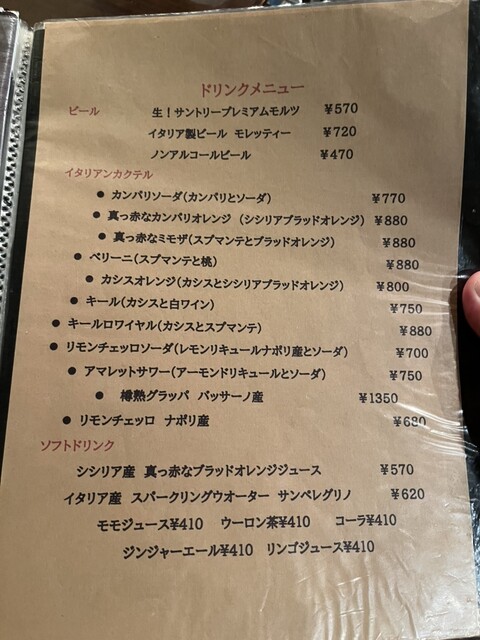 ドリンクメニュー
ビール 生！サントリープレミアムモルツ ¥570
イタリア製ビール モレッティー ¥720
ノンアルコールビール ¥470
イタリアンカクテル
● カンパリソーダ(カンパリとソーダ) ¥770
● 真っ赤なカンパリオレンジ (シシリアブラッドオレンジ) ¥880
● 真っ赤なミモザ(スプマンテとブラッドオレンジ) ¥880
● ベリーニ(スプマンテと桃) ¥880
● カシスオレンジ(カシスとシシリアブラッドオレンジ) ¥800
● キール(カシスと白ワイン) ¥750
● キールロワイヤル(カシスとスプマンテ) ¥880
● リモンチェッロソーダ(レモンリキュールナポリ産とソーダ) ¥700
● アマレットサワー(アーモンドリキュールとソーダ) ¥750
● 樽熟グラッパ バッサーノ産 ¥1350
● リモンチェッロ ナポリ産 ¥680
ソフトドリンク
シシリア産 真っ赤なブラッドオレンジジュース ¥570
イタリア産 スパークリングウオーター サンペレグリノ ¥620
モモジュース¥410 ウーロン茶¥410 コーラ¥410
ジンジャーエール¥410 リンゴジュース¥410